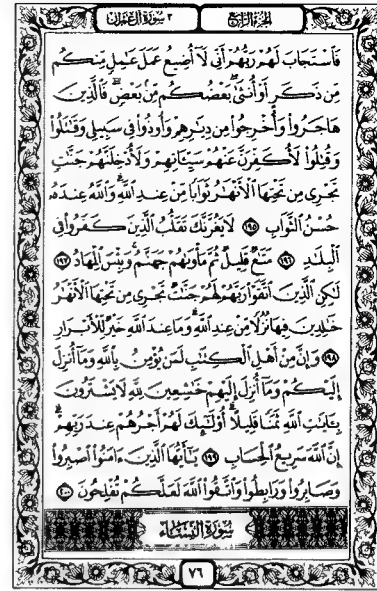 الجزء الرابع
٣ سورة آل عمران
فَٱسْتَجَابَ لَهُمْ رَبُّهُمْ أَنِّي لَآ أُضِيعُ عَمَلَ عَٰمِلٍ مِّنكُم
مِّن ذَكَرٍ أَوْ أُنثَىٰۖ بَعْضُكُم مِّنۢ بَعْضٖۖ فَٱلَّذِينَ
هَاجَرُوا۟ وَأُخْرِجُوا۟ مِن دِيَٰرِهِمْ وَأُوذُوا۟ فِي سَبِيلِي وَقَٰتَلُوا۟
وَقُتِلُوا۟ لَأُكَفِّرَنَّ عَنْهُمْ سَيِّـَٔاتِهِمْ وَلَأُدْخِلَنَّهُمْ جَنَّٰتٍ
تَجْرِي مِن تَحْتِهَا ٱلْأَنْهَٰرُ ثَوَابًا مِّنْ عِندِ ٱللَّهِۗ وَٱللَّهُ عِندَهُۥ
حُسْنُ ٱلثَّوَابِ ١٩٥ لَا يَغُرَّنَّكَ تَقَلُّبُ ٱلَّذِينَ كَفَرُوا۟ فِي
ٱلْبِلَٰدِ ١٩٦ مَتَٰعٌ قَلِيلٌ ثُمَّ مَأْوَىٰهُمْ جَهَنَّمُۚ وَبِئْسَ ٱلْمِهَادُ ١٩٧
لَٰكِنِ ٱلَّذِينَ ٱتَّقَوْا۟ رَبَّهُمْ لَهُمْ جَنَّٰتٌ تَجْرِي مِن تَحْتِهَا ٱلْأَنْهَٰرُ
خَٰلِدِينَ فِيهَا نُزُلًا مِّنْ عِندِ ٱللَّهِۗ وَمَا عِندَ ٱللَّهِ خَيْرٌ لِّلْأَبْرَارِ
١٩٨ وَإِنَّ مِنْ أَهْلِ ٱلْكِتَٰبِ لَمَن يُؤْمِنُ بِٱللَّهِ وَمَآ أُنزِلَ
إِلَيْكُمْ وَمَآ أُنزِلَ إِلَيْهِمْ خَٰشِعِينَ لِلَّهِ لَا يَشْتَرُونَ
بِـَٔايَٰتِ ٱللَّهِ ثَمَنًا قَلِيلًاۗ أُو۟لَٰٓئِكَ لَهُمْ أَجْرُهُمْ عِندَ رَبِّهِمْۗ
إِنَّ ٱللَّهَ سَرِيعُ ٱلْحِسَابِ ١٩٩ يَٰٓأَيُّهَا ٱلَّذِينَ ءَامَنُوا۟ ٱصْبِرُوا۟
وَصَابِرُوا۟ وَرَابِطُوا۟ وَٱتَّقُوا۟ ٱللَّهَ لَعَلَّكُمْ تُفْلِحُونَ ٢٠٠
سُورَةُ النِّسَاءِ
٧٦